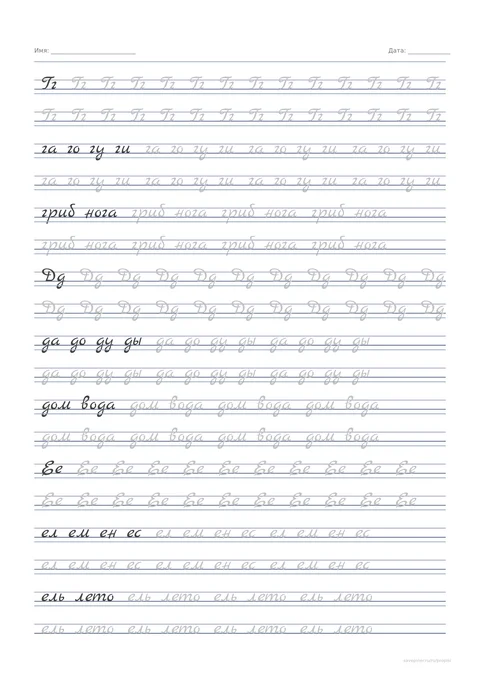 Имя: Дата:
Гг Гг Гг Гг Гг Гг Гг Гг Гг Гг Гг Гг Гг Гг
Гг Гг Гг Гг Гг Гг Гг Гг Гг Гг Гг Гг Гг Гг
га го гу ги га го гу ги га го гу ги га го гу ги
га го гу ги га го гу ги га го гу ги га го гу ги
гриб нога гриб нога гриб нога гриб нога
гриб нога гриб нога гриб нога гриб нога
Дд Дд Дд Дд Дд Дд Дд Дд Дд Дд Дд
Дд Дд Дд Дд Дд Дд Дд Дд Дд Дд Дд
да до ду ды да до ду ды да до ду ды
да до ду ды да до ду ды да до ду ды
дом вода дом вода дом вода дом вода
дом вода дом вода дом вода дом вода
Ее Ее Ее Ее Ее Ее Ее Ее Ее Ее Ее
Ее Ее Ее Ее Ее Ее Ее Ее Ее Ее Ее
ел ем ен ес ел ем ен ес ел ем ен ес
ел ем ен ес ел ем ен ес ел ем ен ес
ель лето ель лето ель лето ель лето
ель лето ель лето ель лето ель лето